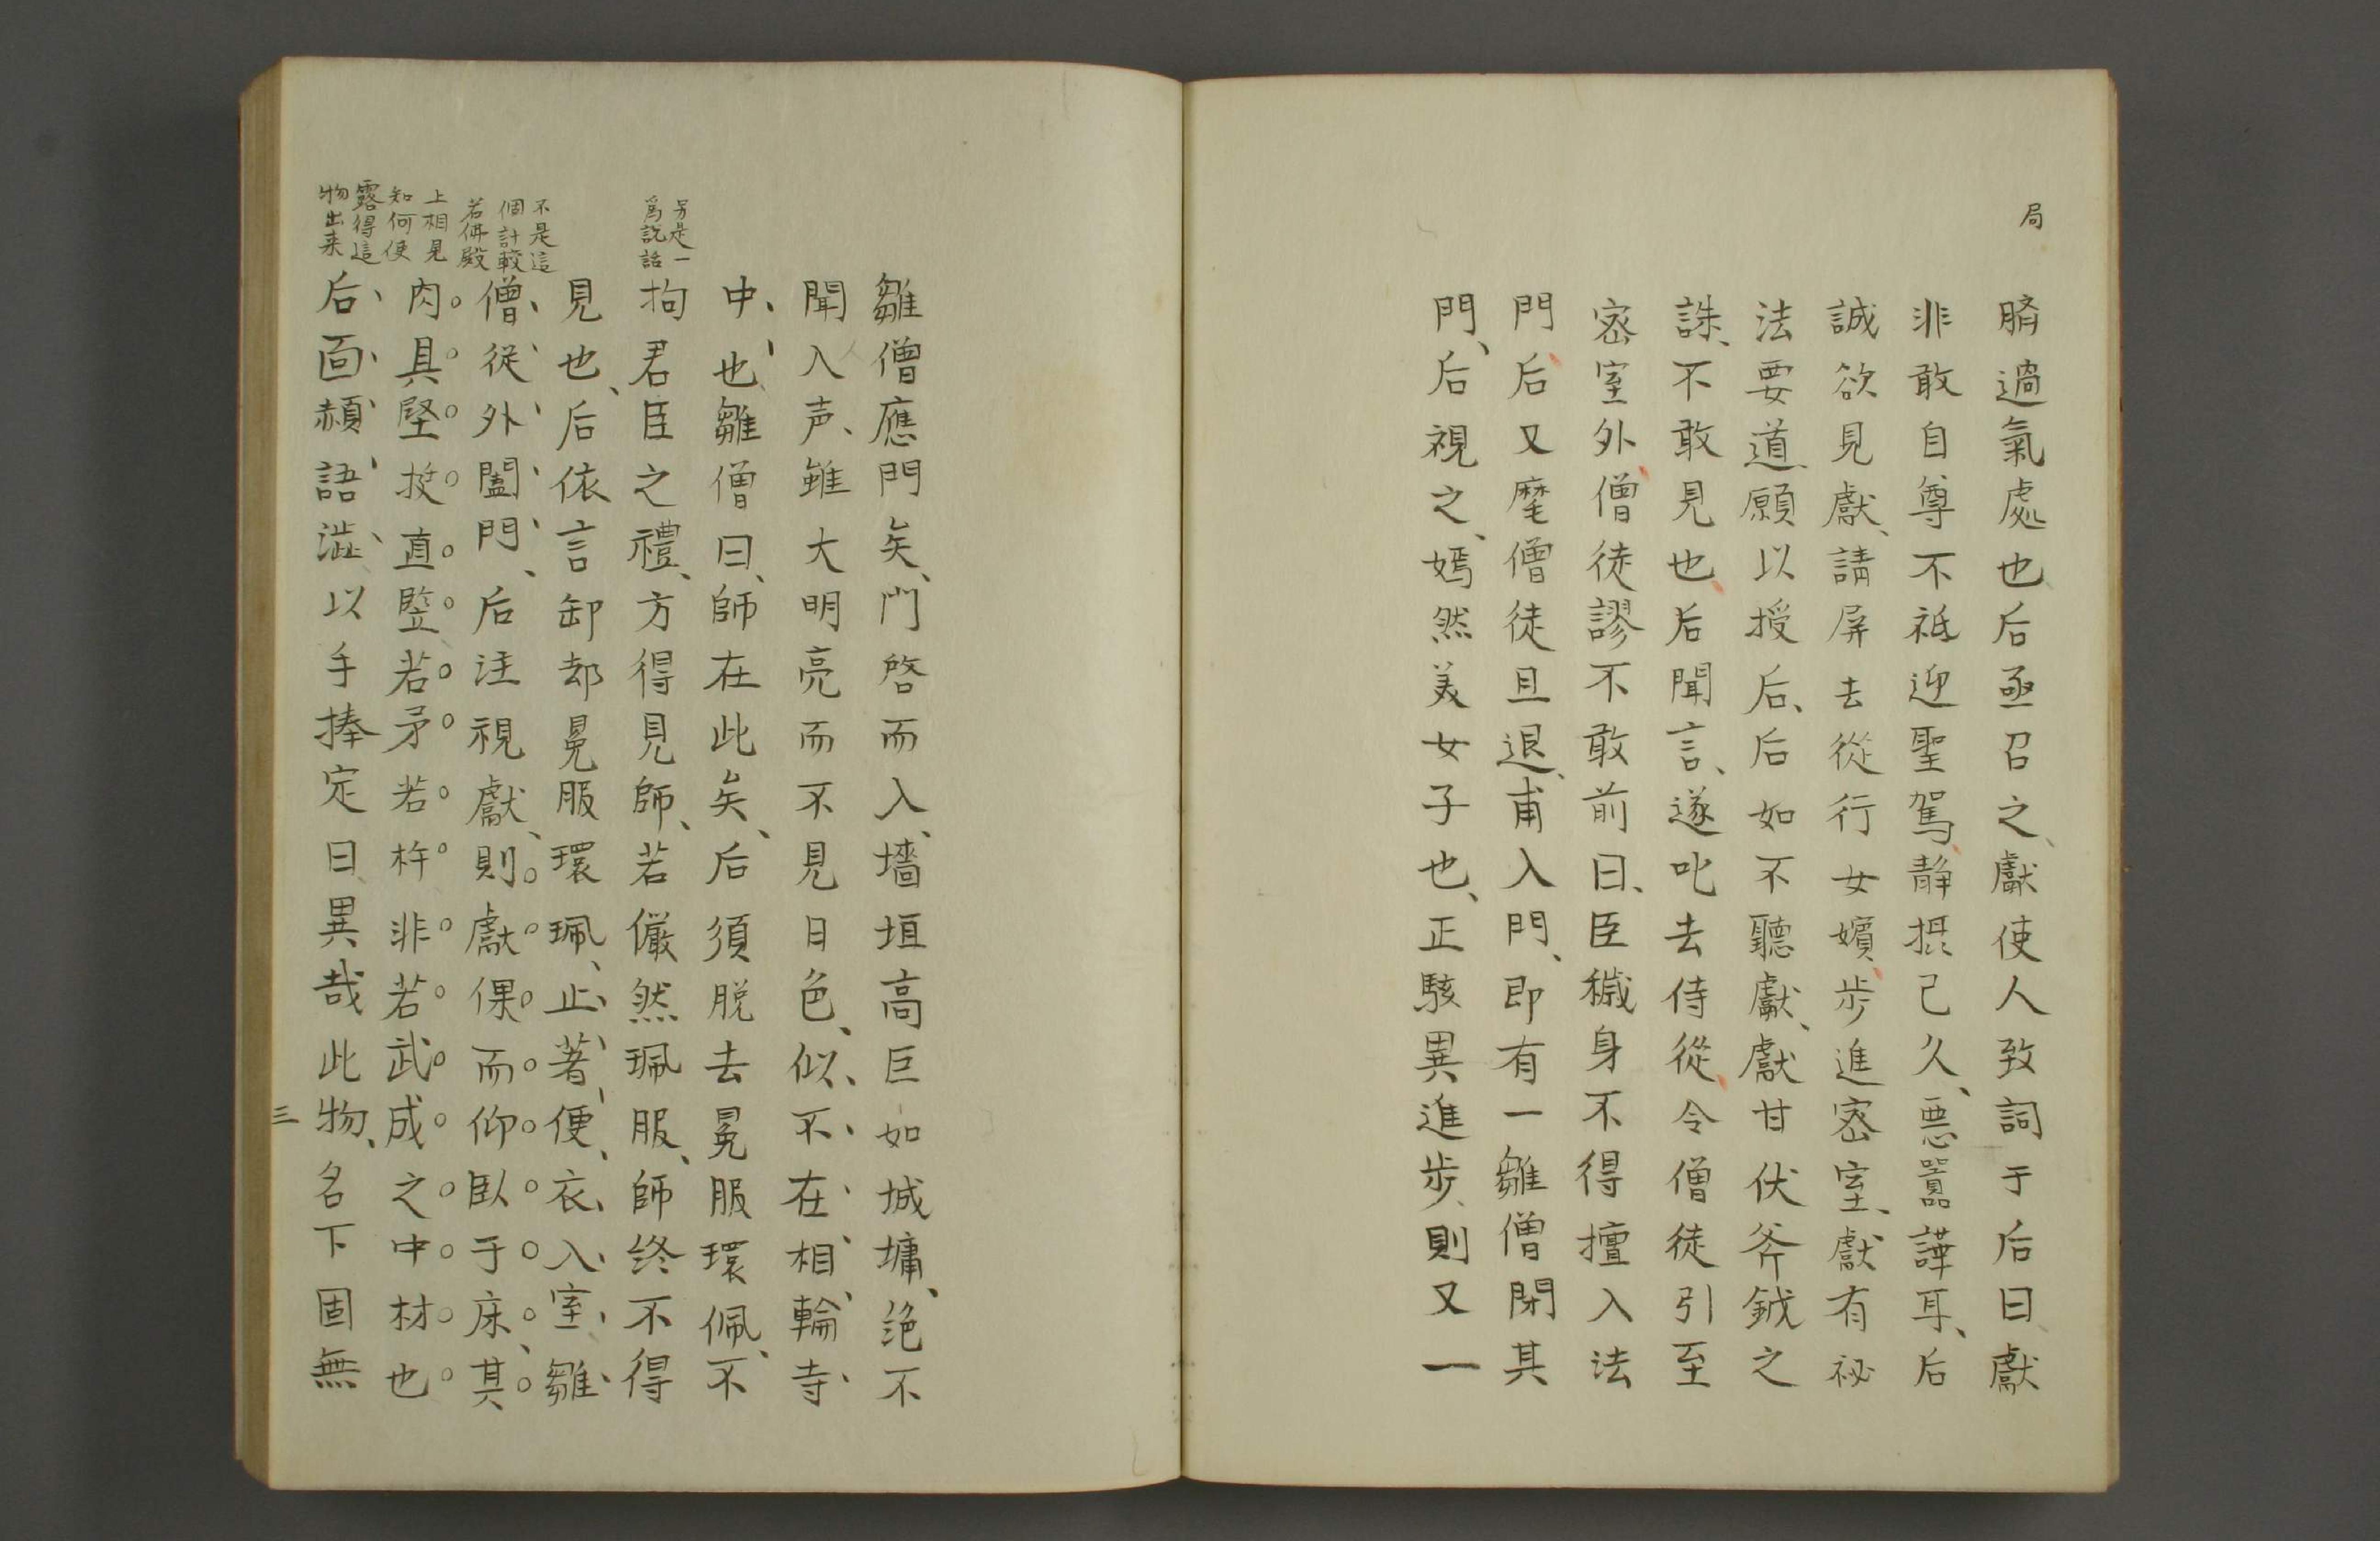 局
臍過氣處也后亟召之、獻使人致詞于后曰、獻
非敢自尊不祗迎聖駕、静摂己久、悪囂譁耳、后
誠欲見獻、請屏去從行女嬪、歩進密室、獻有祕
法要道、願以授后、后如不聽獻、獻甘伏斧鉞之
誅、不敢見也、后聞言、遂叱去侍從、令僧徒引至
密室外、僧徒謬不敢前曰、臣穢身不得擅入法
門、后又麾僧徒且退、甫入門、即有一雛僧閉其
門、后視之、嫣然美女子也、正駭異進歩、則又一
雛僧應門矣、門啓而入、墻垣高巨如城墉、絶不
聞入声、雖大明亮而不見日色、似不在相輪寺
中也、雛僧曰、師在此矣、后須脱去冕服環佩、不
拘君臣之禮、方得見師、若儼然珮服、師终不得
見也、后依言卸却冕服環珮、止著便衣入室、雛
僧從外闔門、后注視獻、則獻倮而仰臥于床、其
肉具堅挺直竪若矛若杵非若武成之中材也
后面頳語澁、以手捧定曰、異哉此物、名下固無
另是一
為説話
不是這
個計較
若併殿
上相見
如何便
露得這
物出来
三